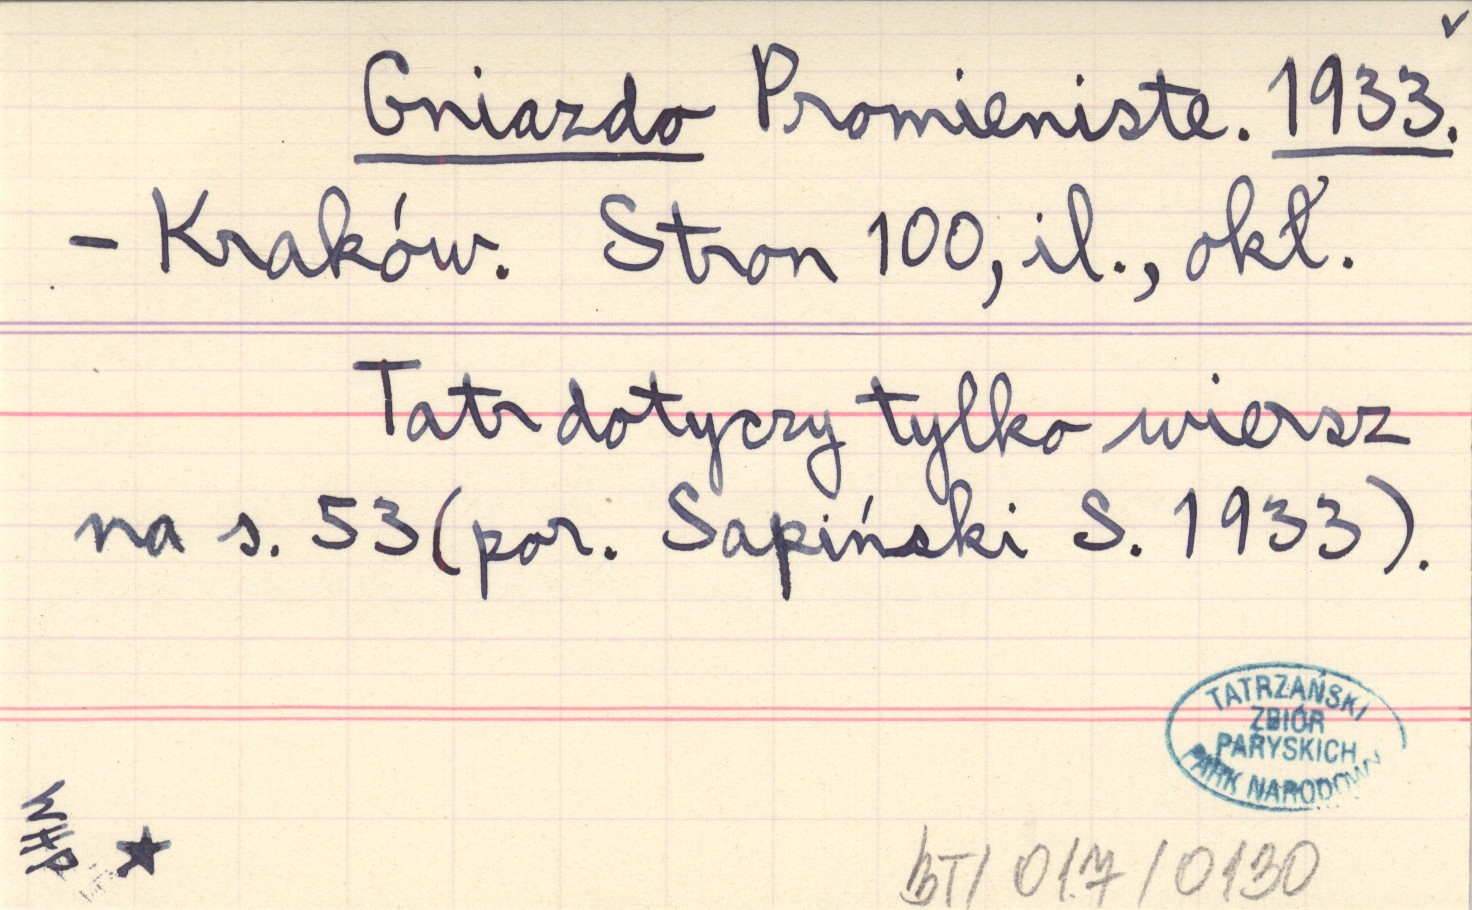 Gniazdo Promieniste. 1933.
- Kraków. Stron 100, il., okł.
Tatr dotyczy tylko wiersz
na s. 53 (por. Sapiński S. 1933).
TATRZAŃSKI
ZBIÓR
PARYSKICH
PARK NARODOWY
WHP
BT/017/0130